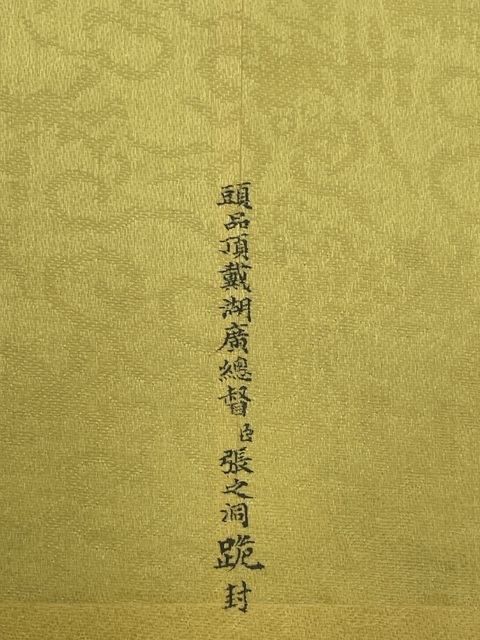 頭品頂戴湖廣總督臣張之洞跪封